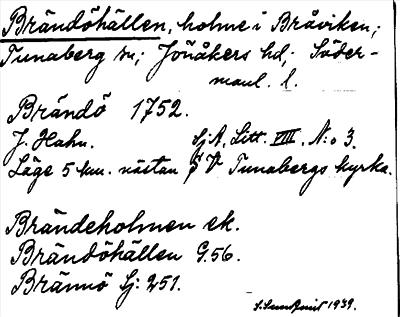 Brändöhällen, holme i Bråviken;
Tunaberg sn; Jönåkers hd; Söder-
manl. l.
Brändö 1752.
J. Hahn. SjA, Litt. VIII. N:o 3.
Läge 5 km. nästan i V Tunabergs kyrka.
Brändeholmen ek.
Brändöhällen G.56.
Brännö Sj: 251.
1939.